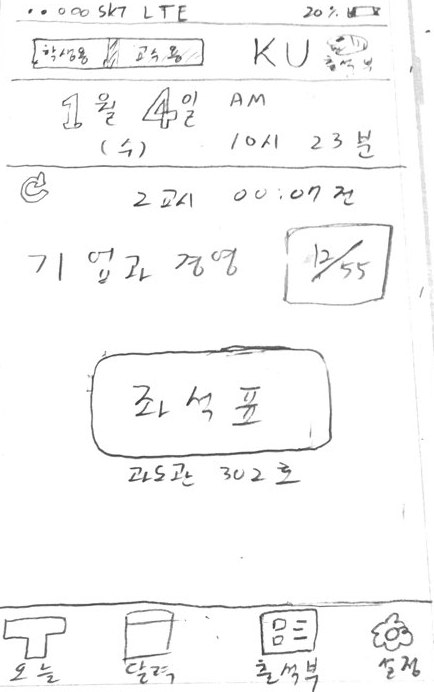 SKT LTE 20%
학생용 교수용 KU 출석부
1월 4일 AM
(수) 10시 23분
2교시 00:07전
기업과 경영 12/55
좌석표
과도관 302호
오늘 달력 출석부 설정